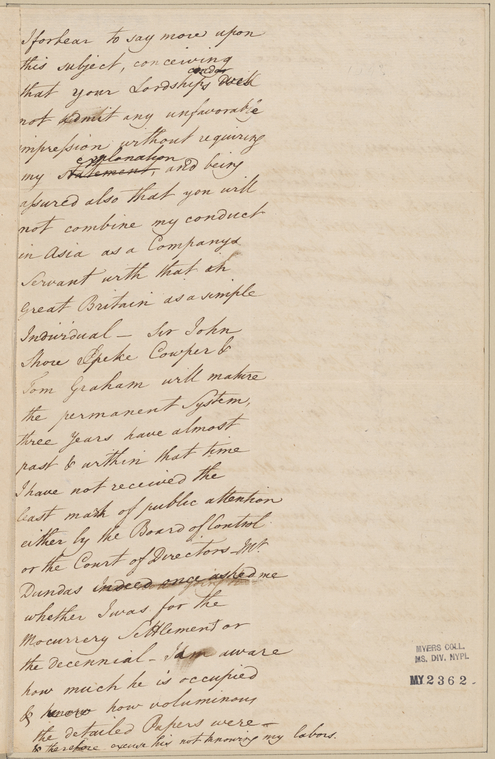 I forbear to say more upon
this subject, conceiving
candor
that your Lordship's
not admit any unfavorable
impression without requiring
explanation
my statement, and being
assured also that you will
not combine my conduct
in Asia as a Companys
Servant with that in
Great Britain as a simple
Individual — Sir John
Shore Speke Cowper &
Tom Graham will mature
the permanent System,
three Years have almost
past & within that time
I have not received the
least mark of public attention
either by the Board of Control
or the Court of Directors — Mr.
Dundas indeed once asked me
whether I was for the
Mocurrery Settlement or
the decennial — I am aware
how much he is occupied
& know how voluminous
the detailed Papers were —
& therefore excuse his not knowing my labors.
MYERS COLL.
MS. DIV. NYPL
MY 2362.